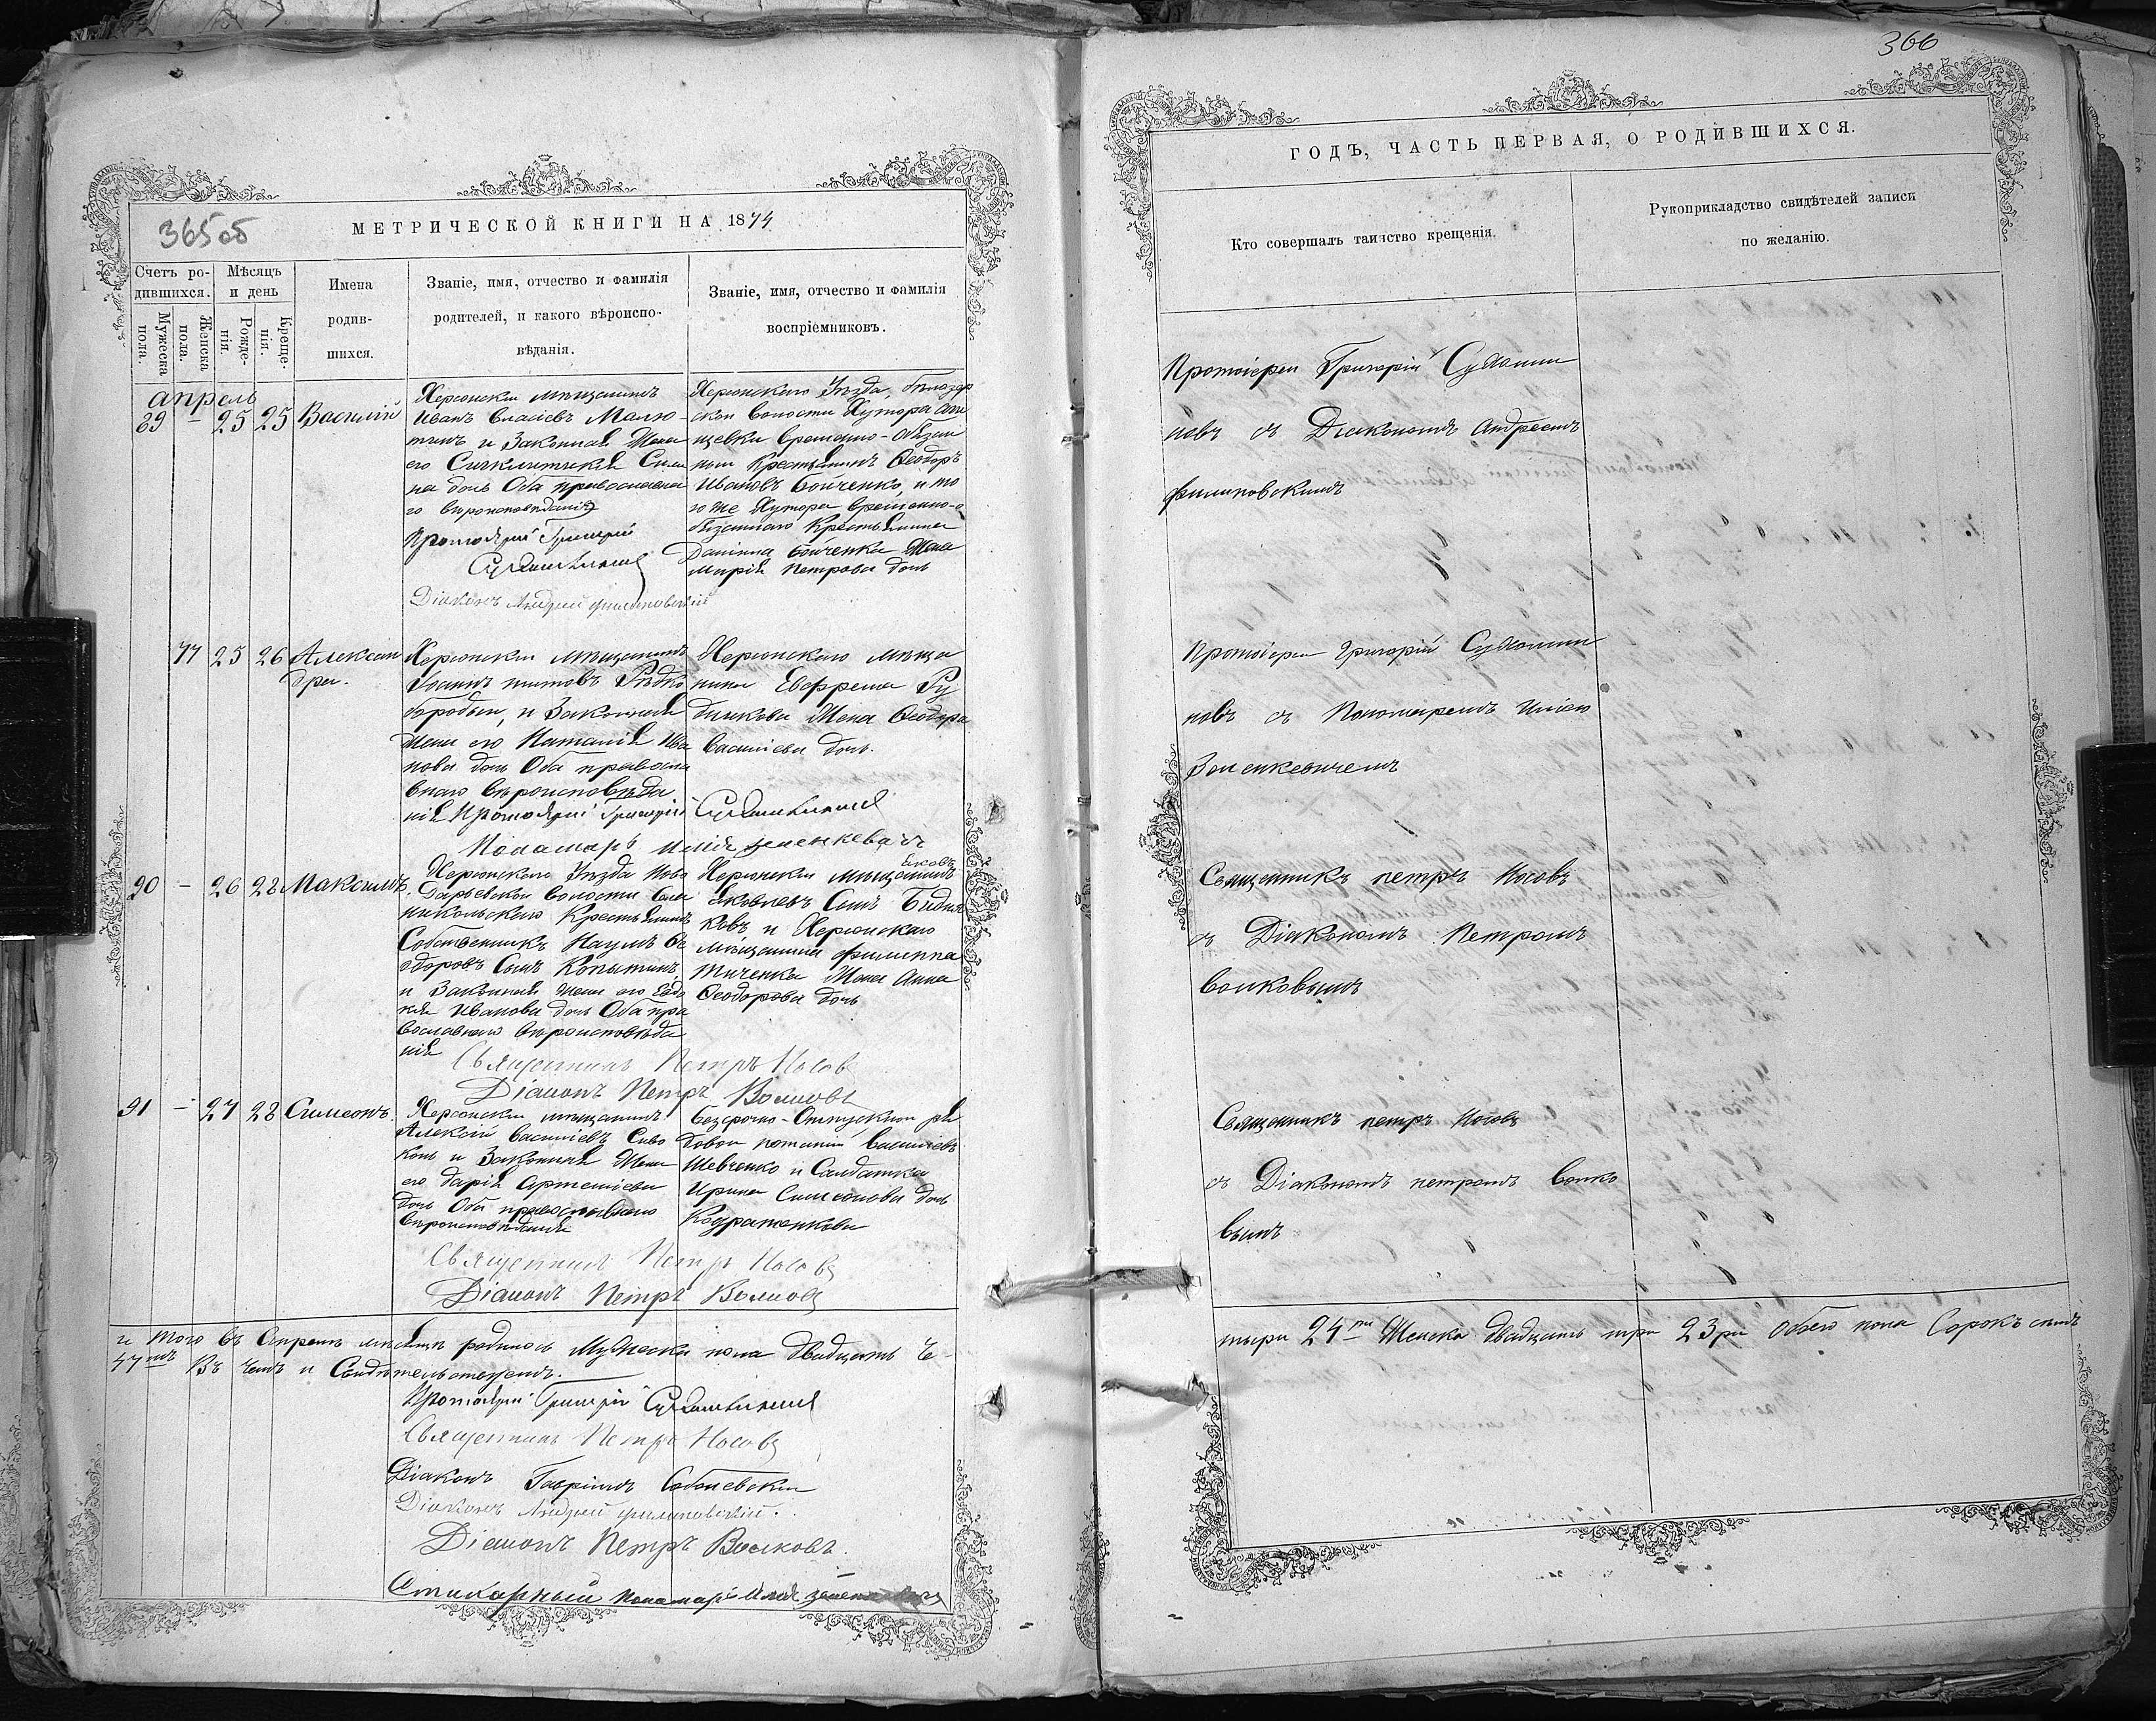 365 об
МЕТРИЧЕСКОЙ КНИГИ НА 1874
Счетъ ро-
дившихся.
Мѣсяцъ
и день
Мужеска
пола.
Женска
пола.
Рожде-
нія.
Креще-
нія.
Имена
родив-
шихся.
Званіе, имя, отчество и фамилія
родителей, и какого вѣроиспо-
вѣданія.
Званіе, имя, отчество и фамилія
воспріемниковъ.
апрель
89 – 25 25 Василій
Херсонскій мѣщанинъ
Иванъ Власіевъ Малю-
тинъ и Законная Жена
его
на дочь Оба православна
го вѣроисповѣданія
Протоіерей Григорій
Діаконъ Андрей Филиповскій
Херсонскаго Уѣзда, бѣлозер
ской волости Хутора
щевки временно-обязан
ный крестьянинъ Ѳеодоръ
Ивановъ Бойченко, и то
го же Хутора временно-о
бязаннаго Крестьянина
Даніила Бойченка Жена
Марія Петрова дочь
77 25 26 Алексан
дра.
Херсонскій мѣщанинъ
Іоаннъ Титовъ Рѣдко
бородый, и Законная
Жена его Наталія Ива
нова дочь Оба правосла
внаго вѣроисповѣда
нія Протоіерей Григорій
Понамарь Илія
Херсонскаго мѣща
нина Евфрема Ру
дникова Жена Ѳеодора
Васильева дочь.
90 – 26 28 Максимъ.
Херсонскаго Уѣзда Ново
волости Села
никольскаго Крестьянинъ
Собственникъ Наумъ Ѳе
одоровъ Сынъ Копытинъ,
и Законная жена его Евдо
кія Иванова дочь Оба пра
вославнаго вѣроисповѣда
нія
Священникъ Петръ Носовъ
Діаконъ Петръ Волковъ
Херсонскій мѣщанинъ
Яковлевъ Сынъ
ковъ и Херсонскаго
мѣщанина Филиппа
Тиченка Жена Анна
Ѳеодорова дочь
91 – 27 28 Симеонъ.
Херсонскій мѣщанинъ
Алексій Васильевъ Сиво
конь и Законная Жена
его Дарія Артеміева
дочь Оба православнаго
вѣроисповѣданія
Священникъ Петръ Носовъ
Діаконъ Петръ Волковъ
безсрочно-Отпускной ря
довой Васильевъ
Шевченко и Салдатка
Ирина Симеонова дочь
Кодратенкова
и того въ Апрелѣ мѣсяцѣ родилось Мужеска пола двадцать че-
47мъ Въ чемъ и Свидѣтельствуемъ.
Протоіерей Григорій
Священникъ Петръ Носовъ
Діаконъ Гавріилъ Соболевскій
Діаконъ Андрей Филиповскій.
Діаконъ Петръ Волковъ.
Стихарный Понамарь Илія
366
ГОДЪ, ЧАСТЬ ПЕРВАЯ, О РОДИВШИХСЯ.
Кто совершалъ таинство крещенія.
Рукоприкладство свидѣтелей записи
по желанію.
Протоіерей Григорій
новъ съ Діакономъ Андреемъ
Филиповскимъ
Протоіерей Григорій
новъ съ Пономаремъ Иліею
Зеленкевичемъ
Священникъ Петръ Носовъ
съ Діакономъ Петромъ
Волковымъ
Священникъ Петръ Носовъ
съ Діакономъ Петромъ Волко
вымъ
тыри 24ри Женска двадцать три 23ри обоего пола Сорокъ семь